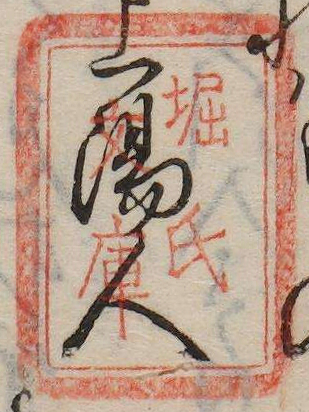 堀氏
文庫
上湯人